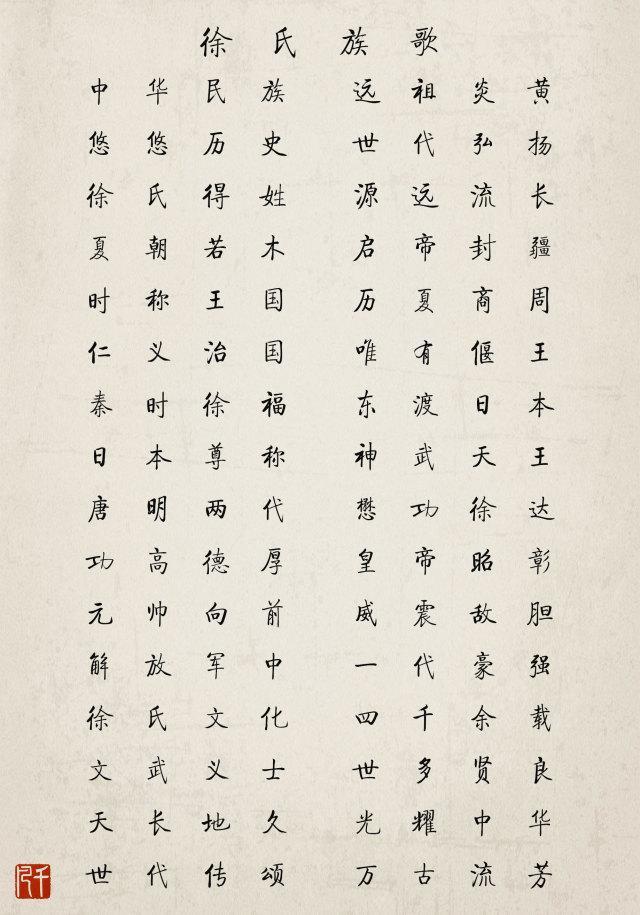 徐氏族歌
中华民族 远祖炎黄
悠悠历史 世代弘扬
徐氏得姓 源远流长
夏朝若木 启帝封疆
时称王国 历夏商周
仁义治国 唯有偃王
秦时徐福 东渡日本
日本尊称 神武天王
唐明两代 懋功徐达
功高德厚 皇帝昭彰
元帅向前 威震敌胆
解放军中 一代豪强
徐氏文化 四千余载
文武义士 世多贤良
天长地久 光耀中华
世代传颂 万古流芳